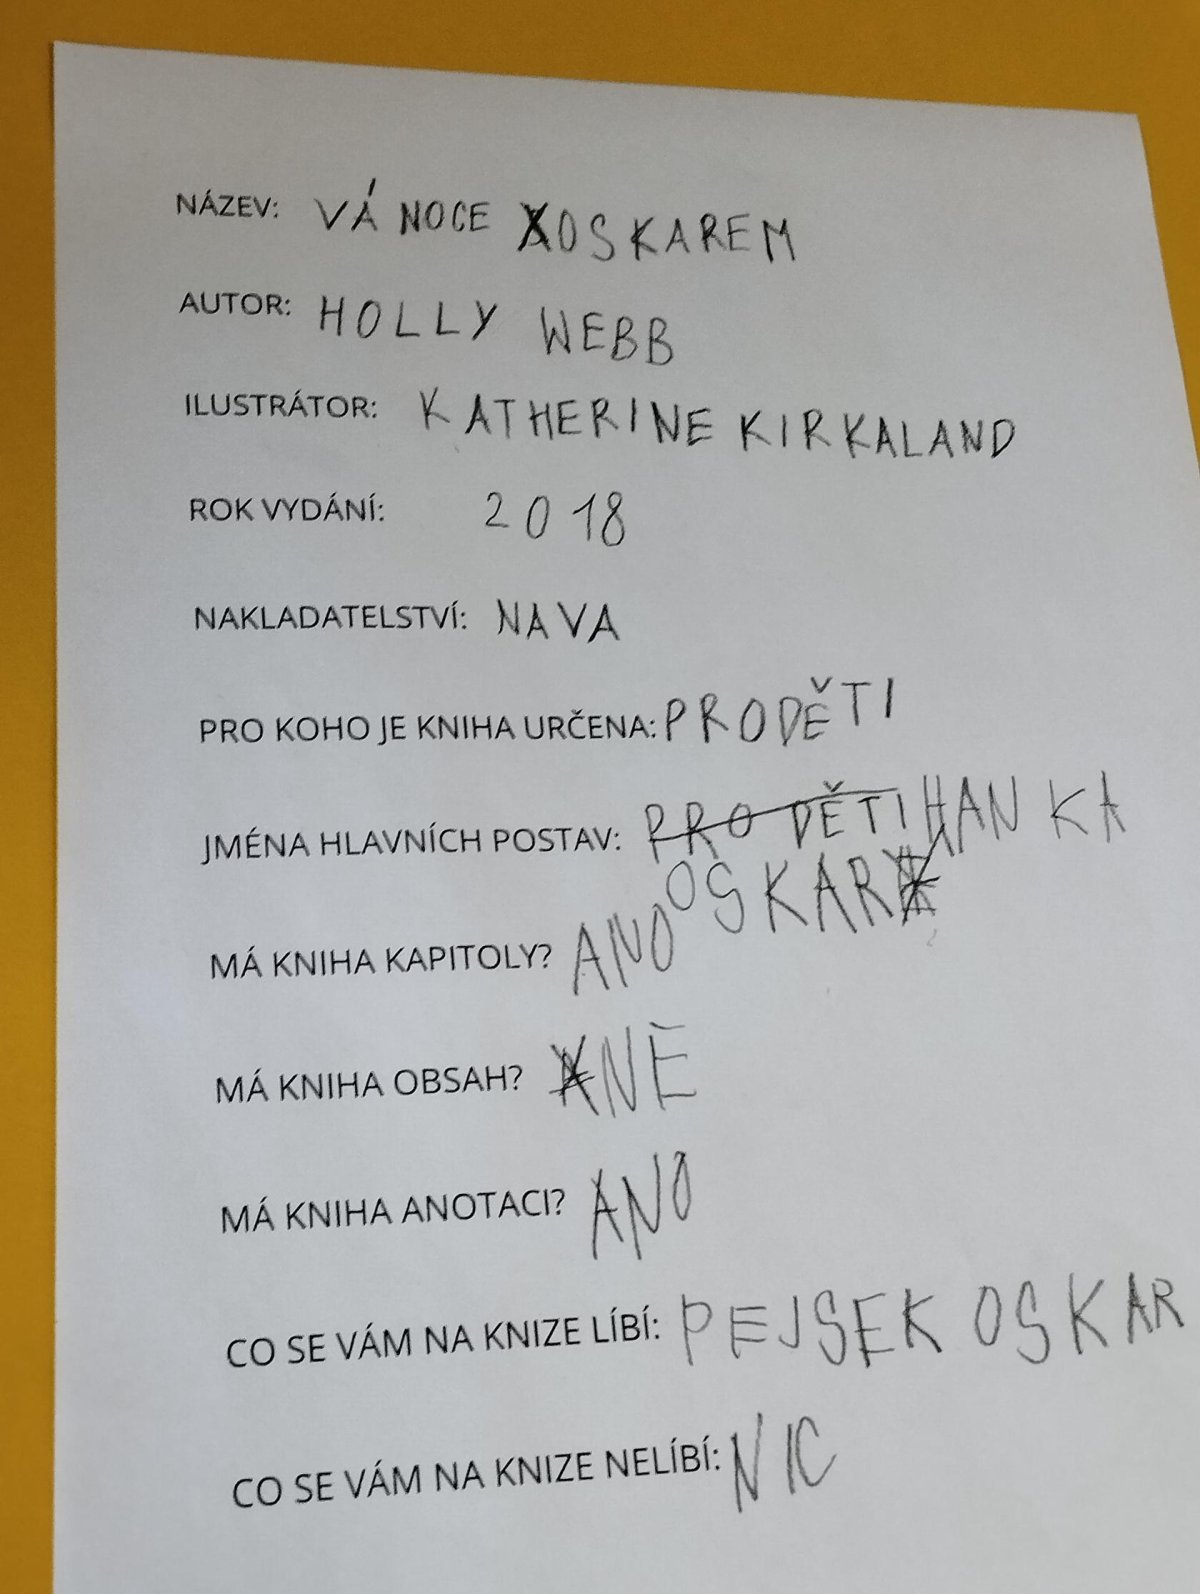 NÁZEV: VÁNOCE OSKAREM
AUTOR: HOLLY WEBB
ILUSTRÁTOR: KATHERINE KIRKALAND
ROK VYDÁNÍ: 2018
NAKLADATELSTVÍ: NAVA
PRO KOHO JE KNIHA URČENA: PRO DĚTI
JMÉNA HLAVNÍCH POSTAV: PRO DĚTI HANKA
OSKAR
MÁ KNIHA KAPITOLY? ANO
MÁ KNIHA OBSAH? NE
MÁ KNIHA ANOTACI? ANO
CO SE VÁM NA KNIZE LÍBÍ: PEJSEK OSKAR
CO SE VÁM NA KNIZE NELÍBÍ: NIC